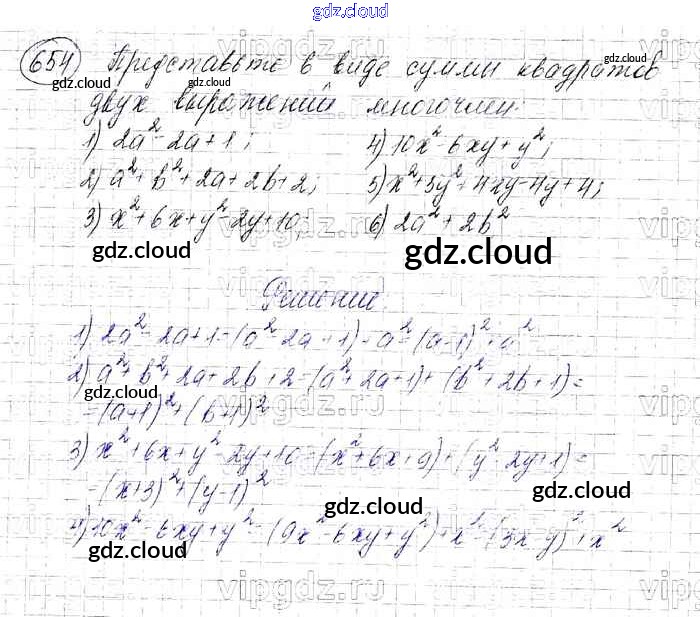 gdz.cloud
654 Представьте в виде суммы квадратов
двух выражений многочлен:
1) 2a² - 2a + 1; 4) 10x² - 6xy + y²;
2) a² + b² + 2a + 2b + 2; 5) x² + 5y² + 4xy - 4y + 4;
3) x² + 6x + y² - 2y + 10; 6) 2a² + 2b²
gdz.cloud gdz.cloud
Решение.
1) 2a² - 2a + 1 = (a² - 2a + 1) + a² = (a-1)² + a²
2) a² + b² + 2a + 2b + 2 = (a² + 2a + 1) + (b² + 2b + 1) =
gdz.cloud
= (a+1)² + (b+1)²
gdz.cloud
3) x² + 6x + y² - 2y + 10 = (x² + 6x + 9) + (y² - 2y + 1) =
= (x+3)² + (y-1)²
gdz.cloud
gdz.cloud
4) 10x² - 6xy + y² = (9x² - 6xy + y²) + x² = (3x-y)² + x²
gdz.cloud
vipgdz.ru